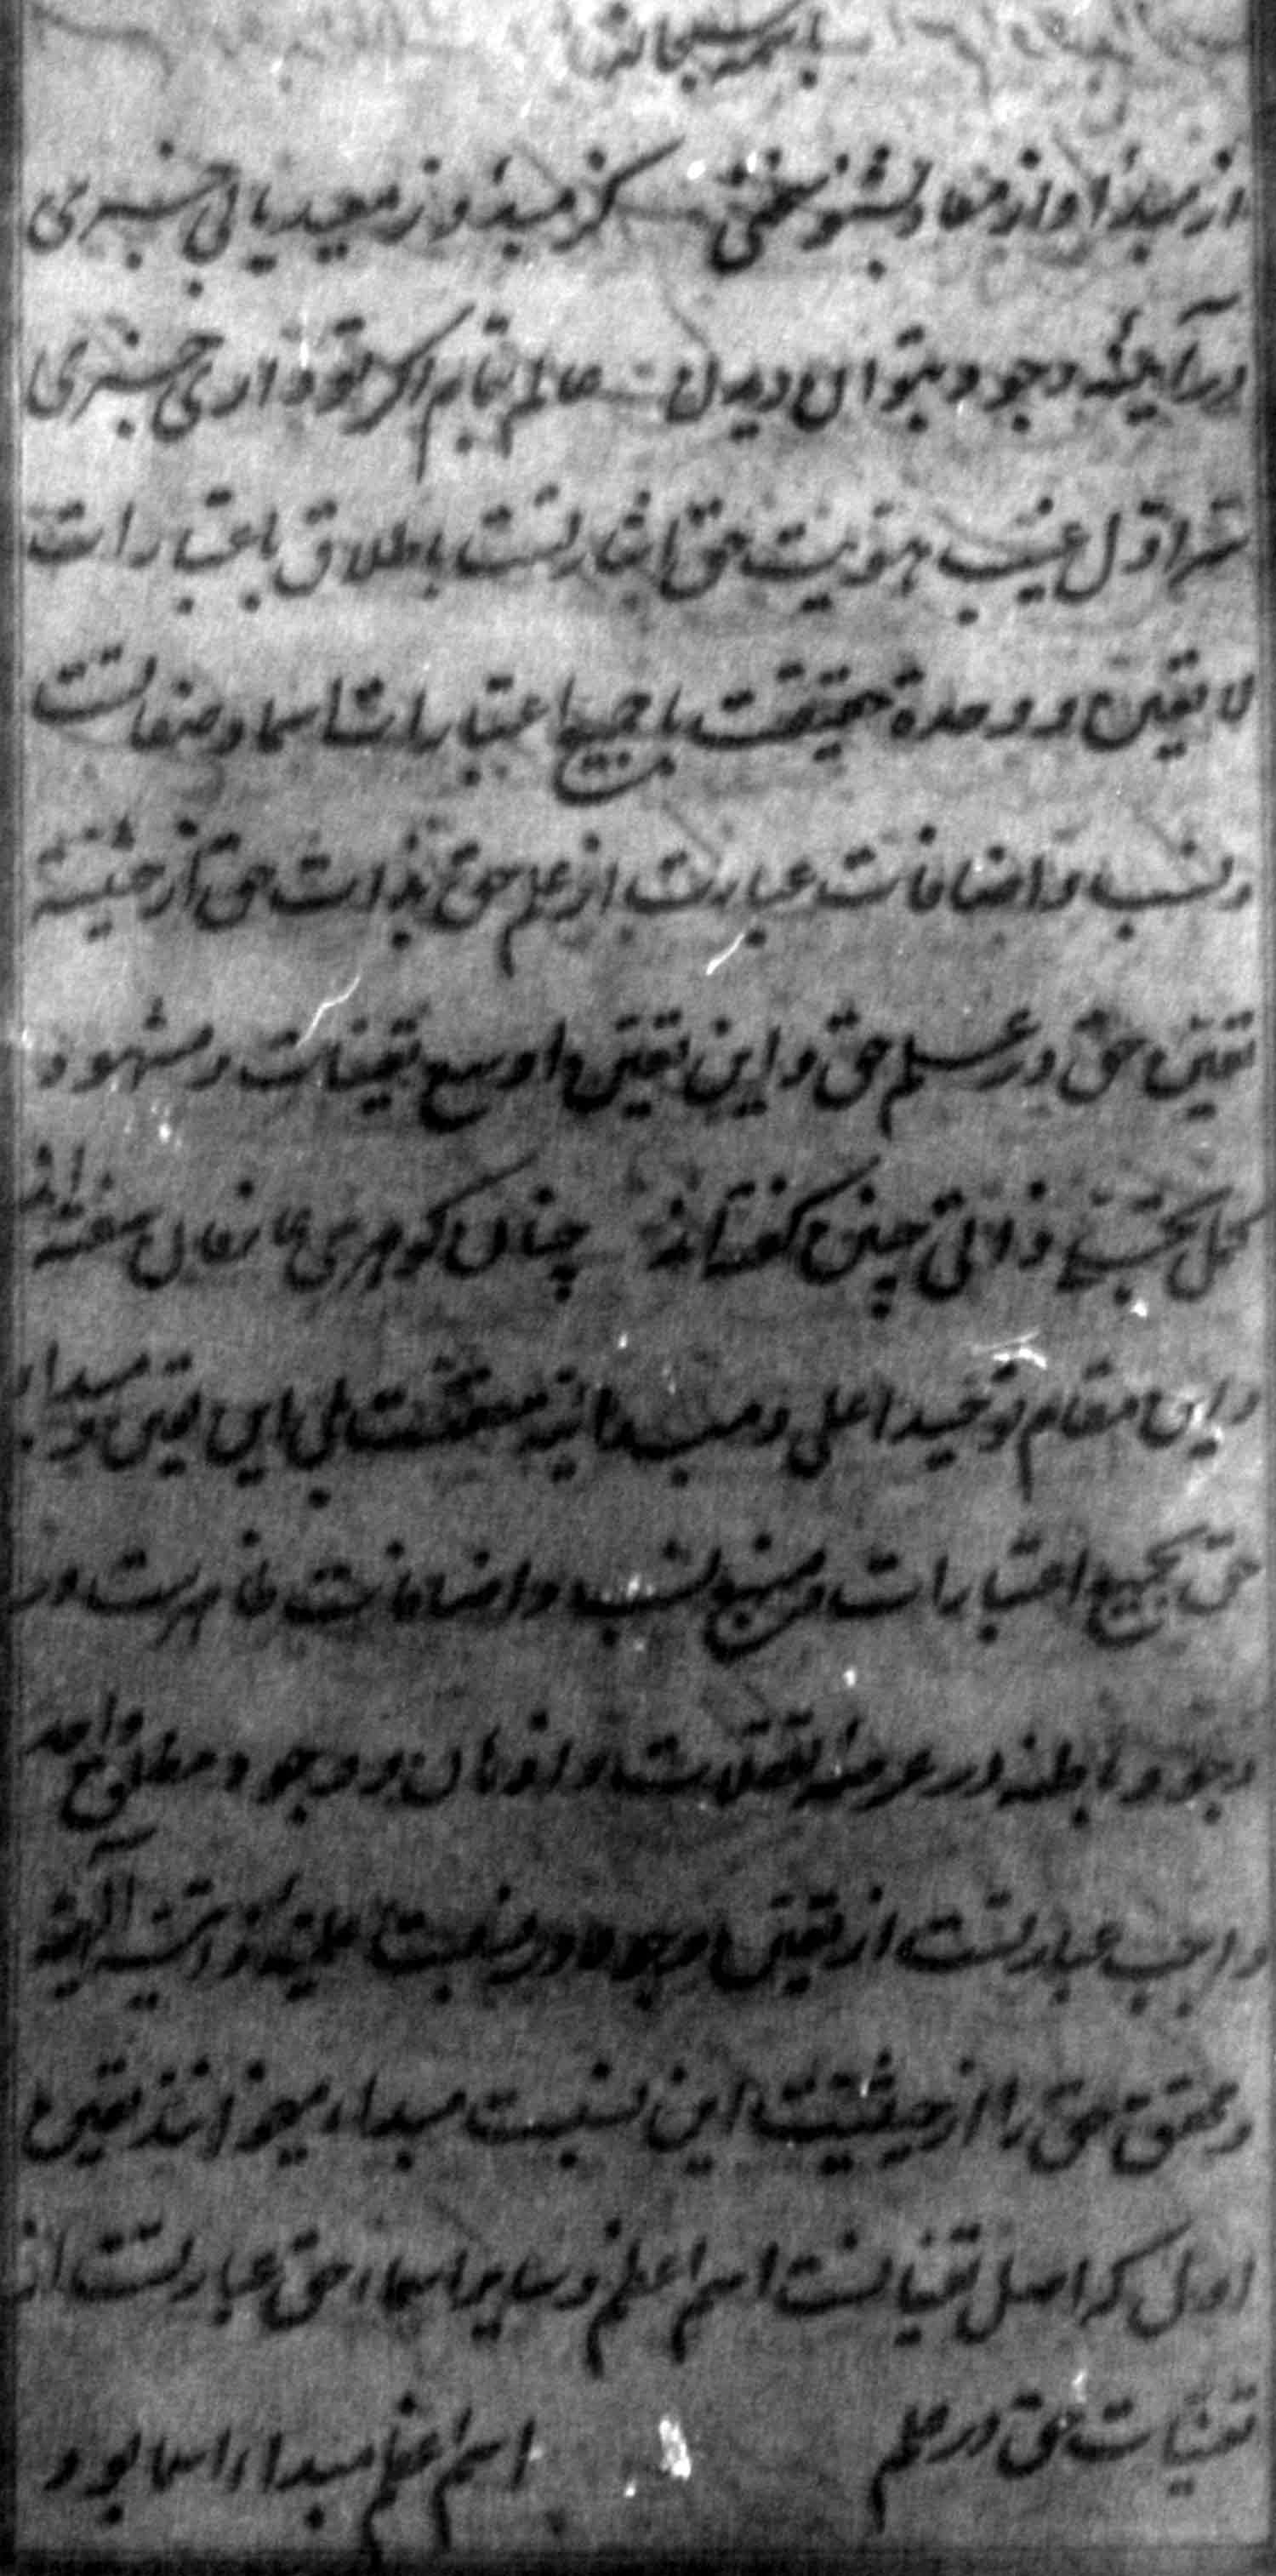 باسمه سبحانه
از مبدأ و از معاد بشنو سخنی کز مبدء و ز معید یابی خبری
در آینهٔ وجود بتوان دیدن عالم بتمام اگر تو داری خبری
اول غیب هویت حق اشارتست باطلاق باعتبارات
لا تعین و وحدة حقیقت با جمیع اعتبارات اسما و صفات
و نسب و اضافات عبارت از علم حق بذات حق از حیثیة
تعین حق در علم حق و این تعین اوسع تعینات و مشهود
کمل تجلی ذاتی چنین گفته‌اند چنان گوهری عارفان سفته‌اند
و این مقام توحید اعلی و مبدائیة حق بلی این تعین و مبدا
حق بجمیع اعتبارات و منبع نسب و اضافات ظاهرست در
وجود و باطنه در عرصه تعقلات و اذهان و وجود مطلق واحد
واجب عبارتست از تعین وجود در نسبت علمیه ذاتیه الهیه
و محقق حق را از حیثیت این نسبت مبداء میخوانند تعین
اول که اصل تعیناتست اسم اعظم و سایر اسماء حق عبارتست از
تعینات حق در علم اسم اعظم مبداء اسما بود